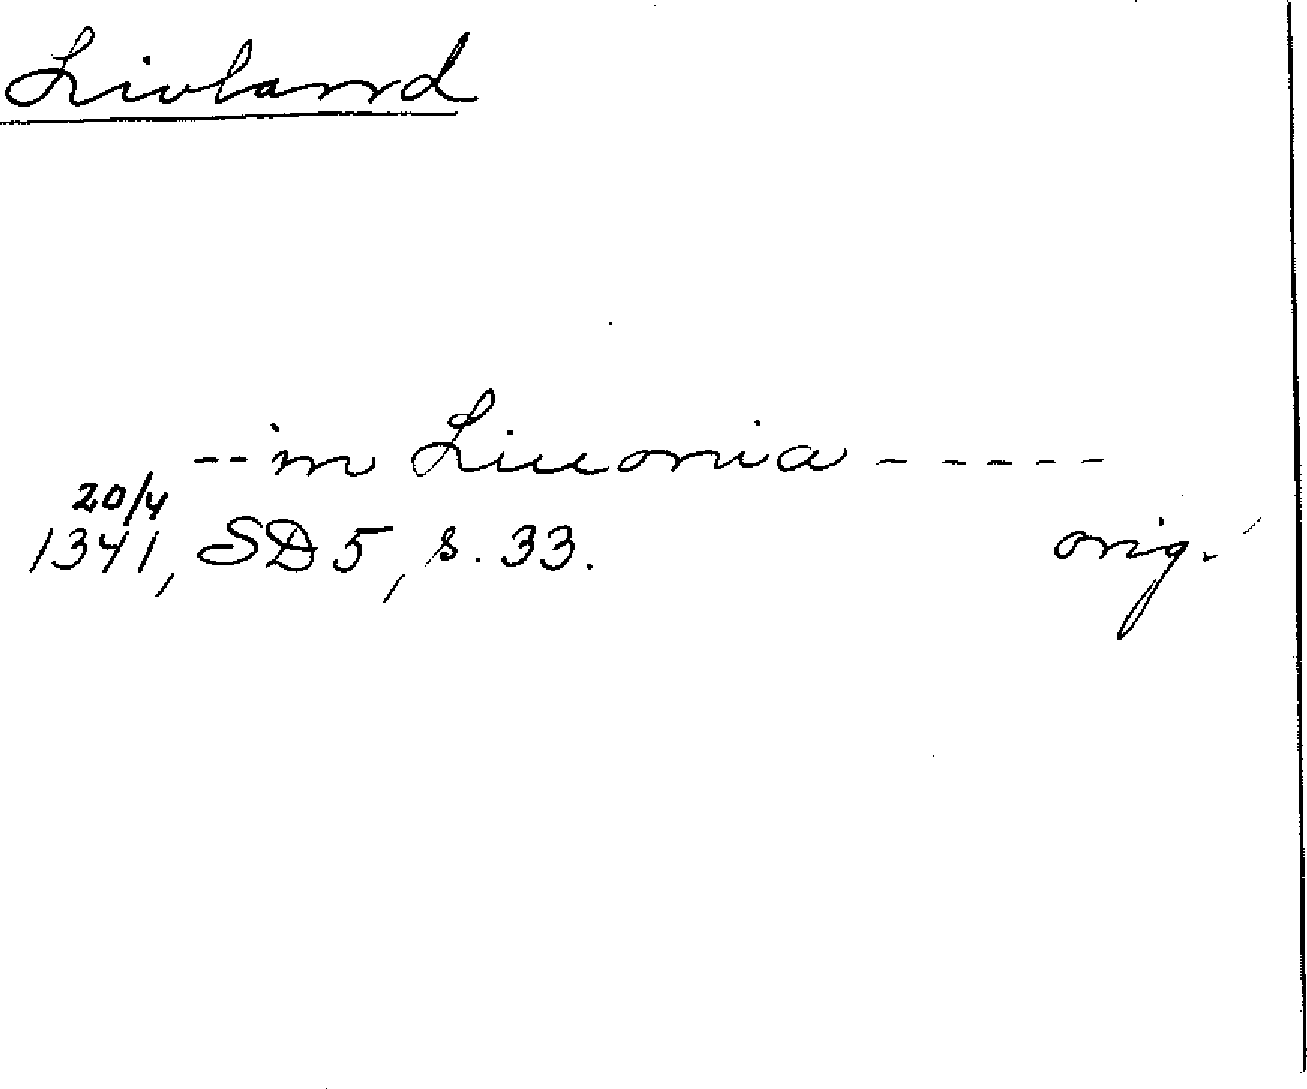 Livland
-- in Liuonia -----
20/4
1341, SD 5, s. 33. orig.